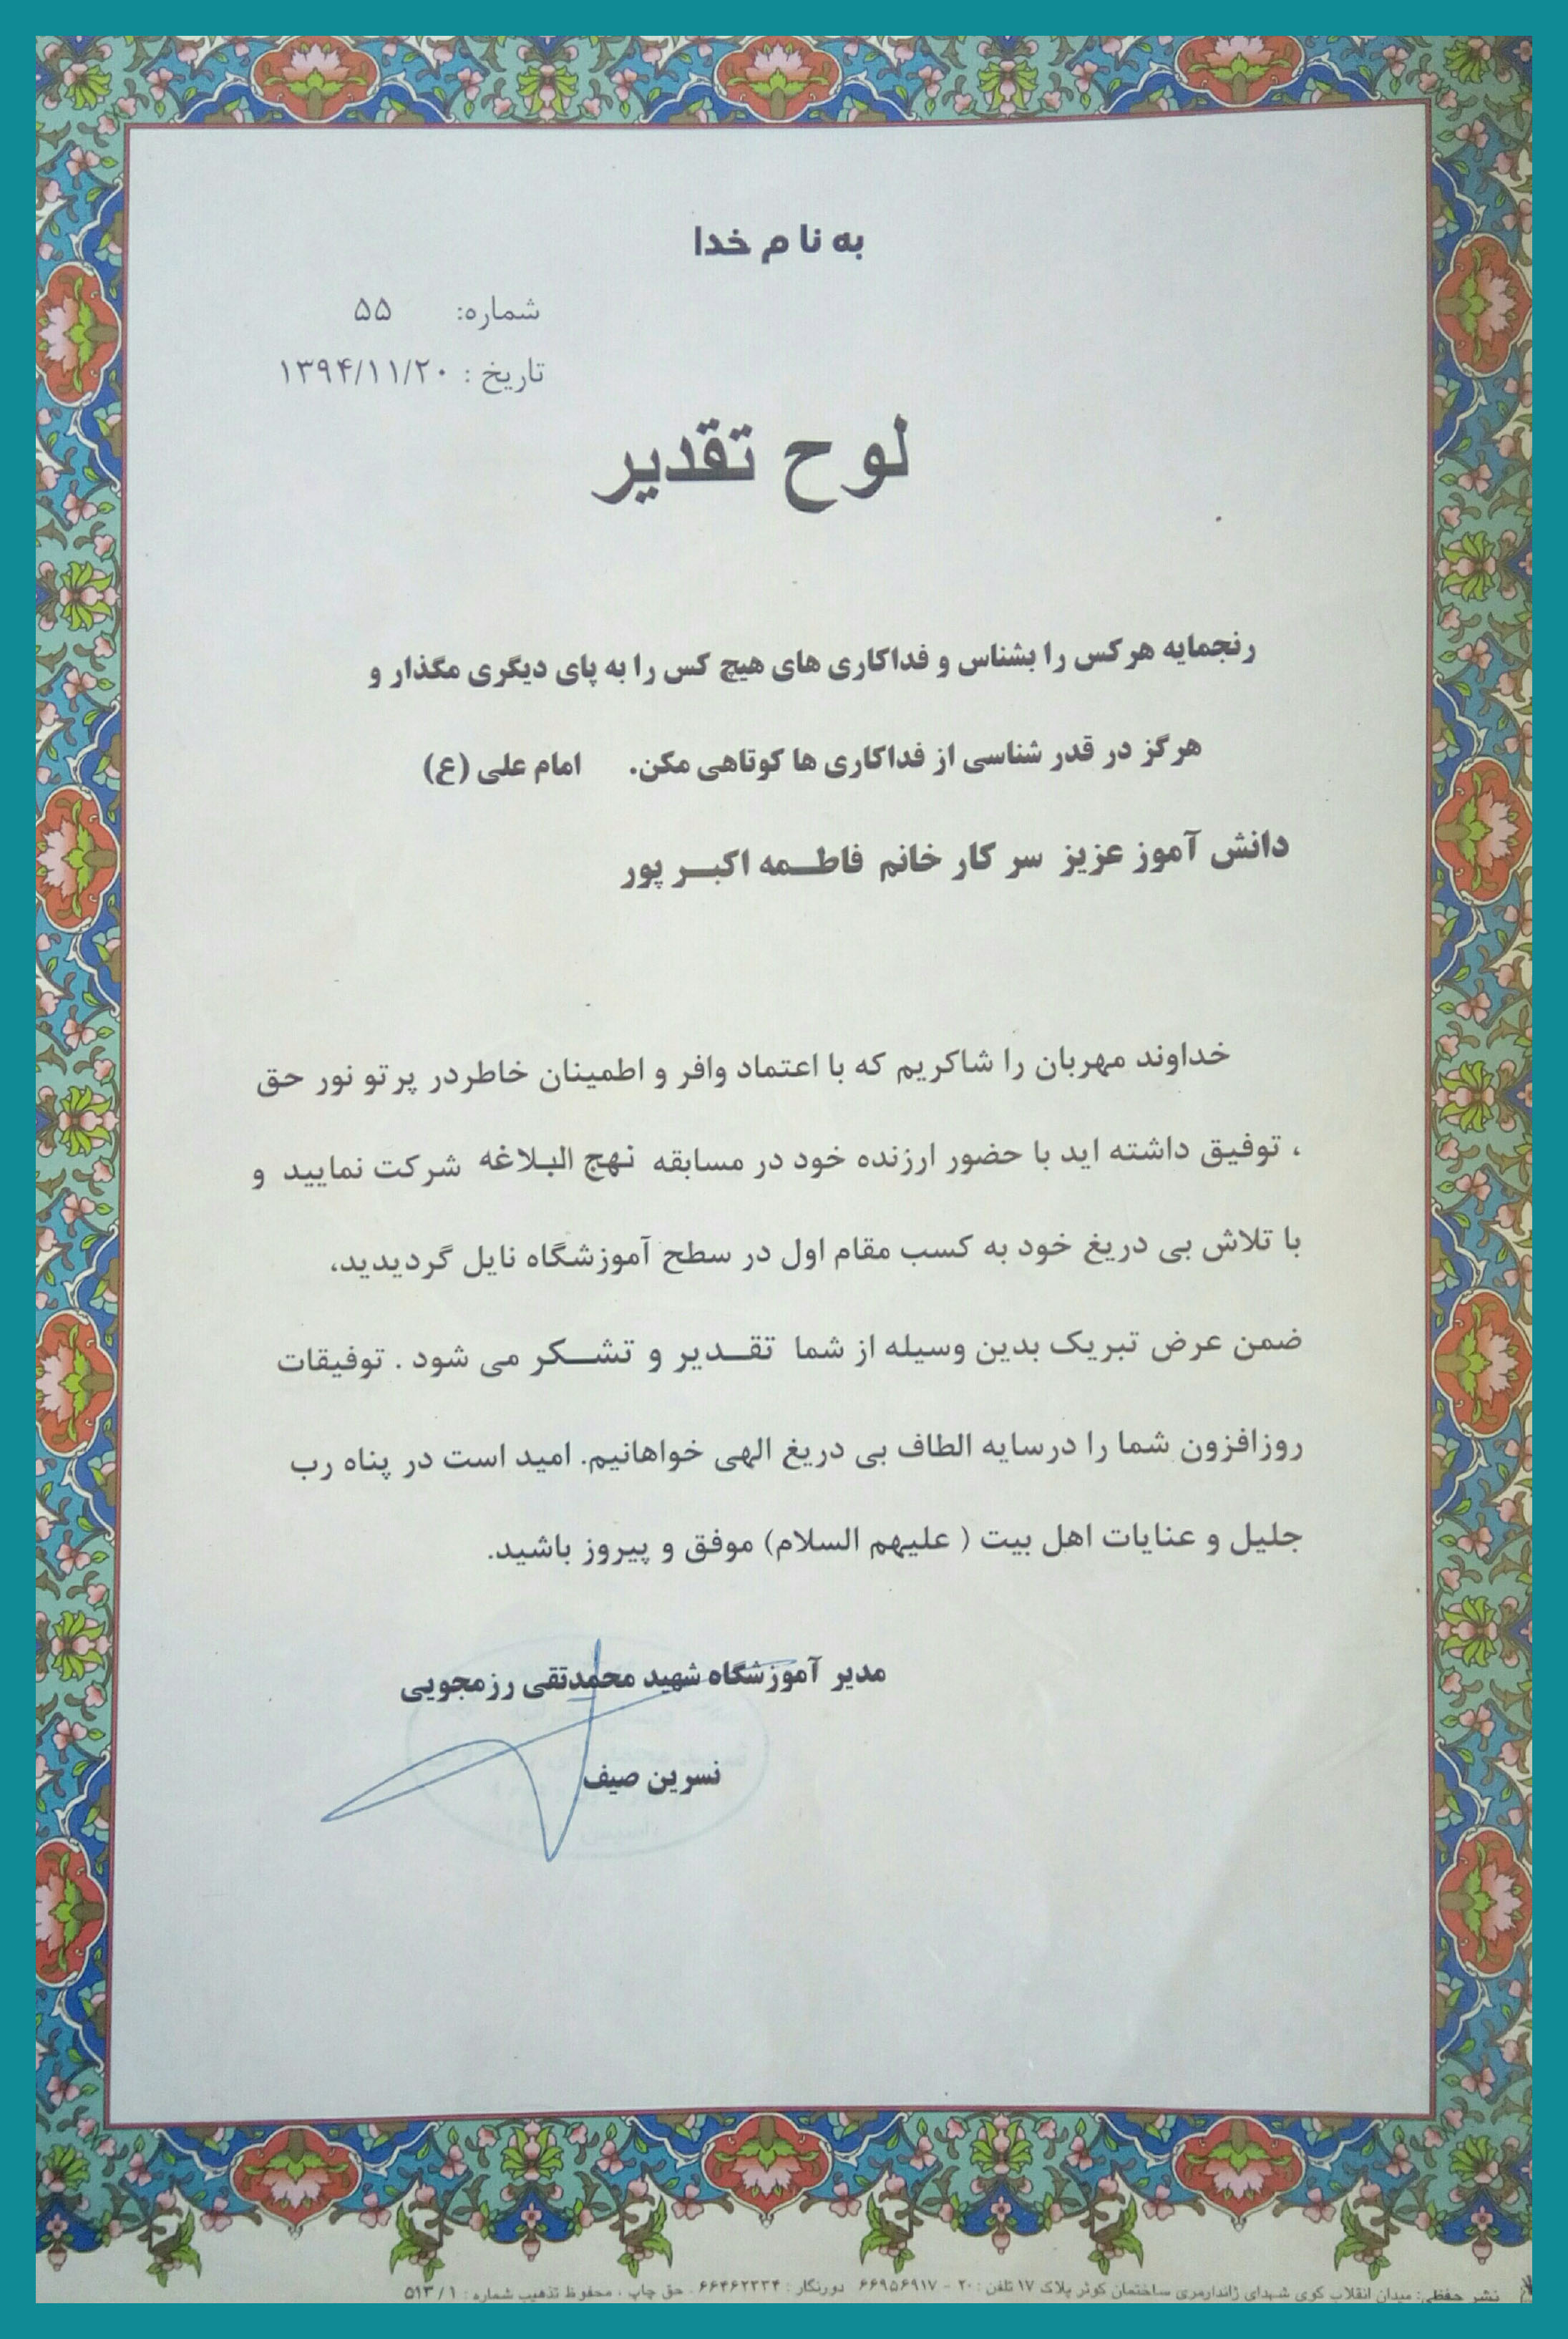 به نام خدا
شماره: ۵۵
تاریخ : ۱۳۹۴/۱۱/۲۰
لوح تقدیر
رنجمایه هرکس را بشناس و فداکاری های هیچ کس را به پای دیگری مگذار و
هرگز در قدر شناسی از فداکاری ها کوتاهی مکن. امام علی (ع)
دانش آموز عزیز سر کار خانم فاطمه اکبر پور
خداوند مهربان را شاکریم که با اعتماد وافر و اطمینان خاطردر پرتو نور حق
، توفیق داشته اید با حضور ارزنده خود در مسابقه نهج البلاغه شرکت نمایید و
با تلاش بی دریغ خود به کسب مقام اول در سطح آموزشگاه نایل گردیدید،
ضمن عرض تبریک بدین وسیله از شما تقدیر و تشکر می شود . توفیقات
روزافزون شما را درسایه الطاف بی دریغ الهی خواهانیم. امید است در پناه رب
جلیل و عنایات اهل بیت ( علیهم السلام) موفق و پیروز باشید.
مدیر آموزشگاه شهید محمدتقی رزمجویی
نسرین صیف
نشر حفظی: میدان انقلاب کوی شهدای ژاندارمری ساختمان کوثر پلاک ۱۷ تلفن : ۲۰ - ۶۶۹۵۶۹۱۷ دورنگار : ۶۶۴۶۲۳۳۴ . حق چاپ ، محفوظ تذهیب شماره : ۵۱۳/۱